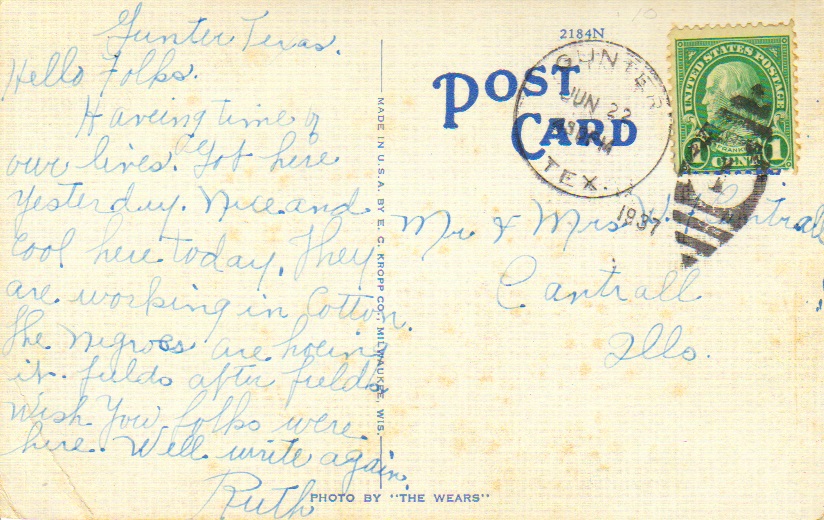 Gunter Texas.
Hello Folks.
Haveing time of
our lives. Got here
yesterday. Nice and
cool here today. They
are working in Cotton.
the Negroes are hoeing
it. fields after fields
Wish You folks were
here. Well write again.
Ruth
MADE IN U.S.A. BY E. C. KROPP CO., MILWAUKEE, WIS.
PHOTO BY "THE WEARS"
2184N
POST
CARD
GUNTER
JUN 22
TEX.
1937
UNITED STATES POSTAGE
FRANKLIN
1 CENT 1
Mr & Mrs W. Cantrall
Cantrall
Ills.